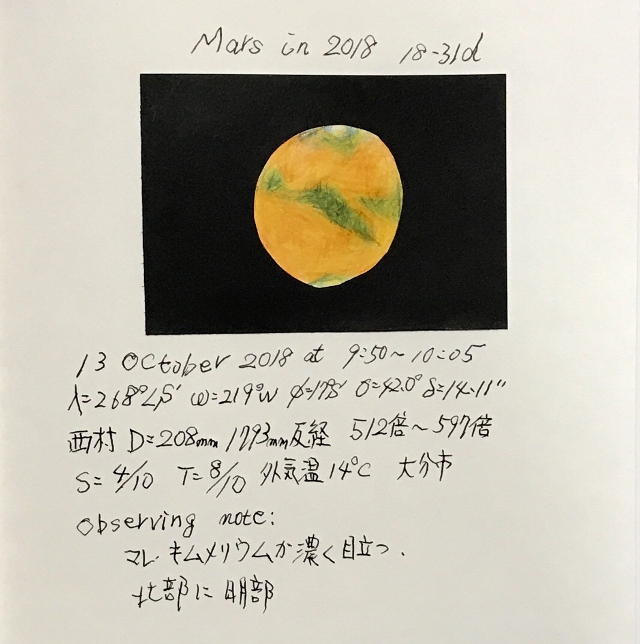 Mars in 2018 18-31d
13 October 2018 at 9:50~10:05
λ=268°Ls ω=219°W φ=17S δ=14.11"
西村 D=208mm 1793mm反経 512倍~597倍
S=4/10 T=8/10 外気温14°C 大分市
observing note:
マレ・キムメリウムが濃く目立つ.
北部に明部